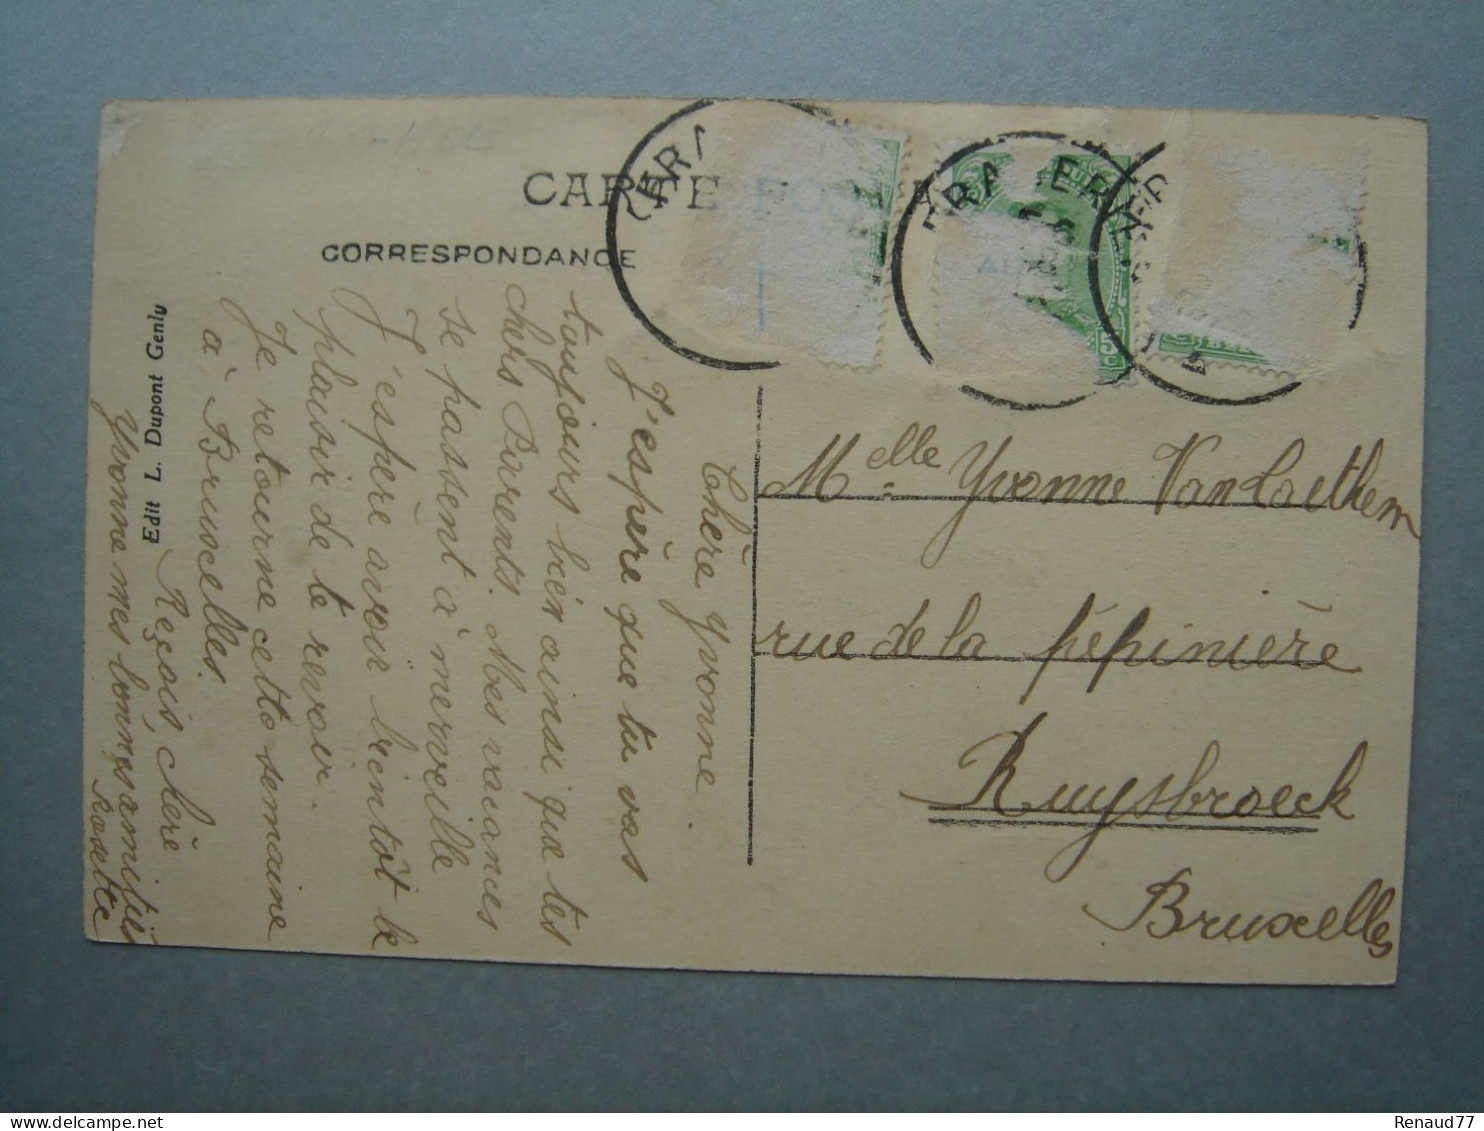 CARTE POS
CORRESPONDANCE
Edit L. Dupont Genly
FRAMERIES
5c
Chère Yvonne
J'espère que tu vas
toujours bien ainsi que tes
chers Parents. Mes vacances
se passent à merveille
J'espère avoir bientôt le
plaisir de te revoir.
Je retourne cette semaine
à Bruxelles.
Reçois, chère
Yvonne mes bonnes amitiés
Rosette
Melle Yvonne VanLaethem
rue de la pépinière
Ruysbroeck
Bruxelles
Renaud77